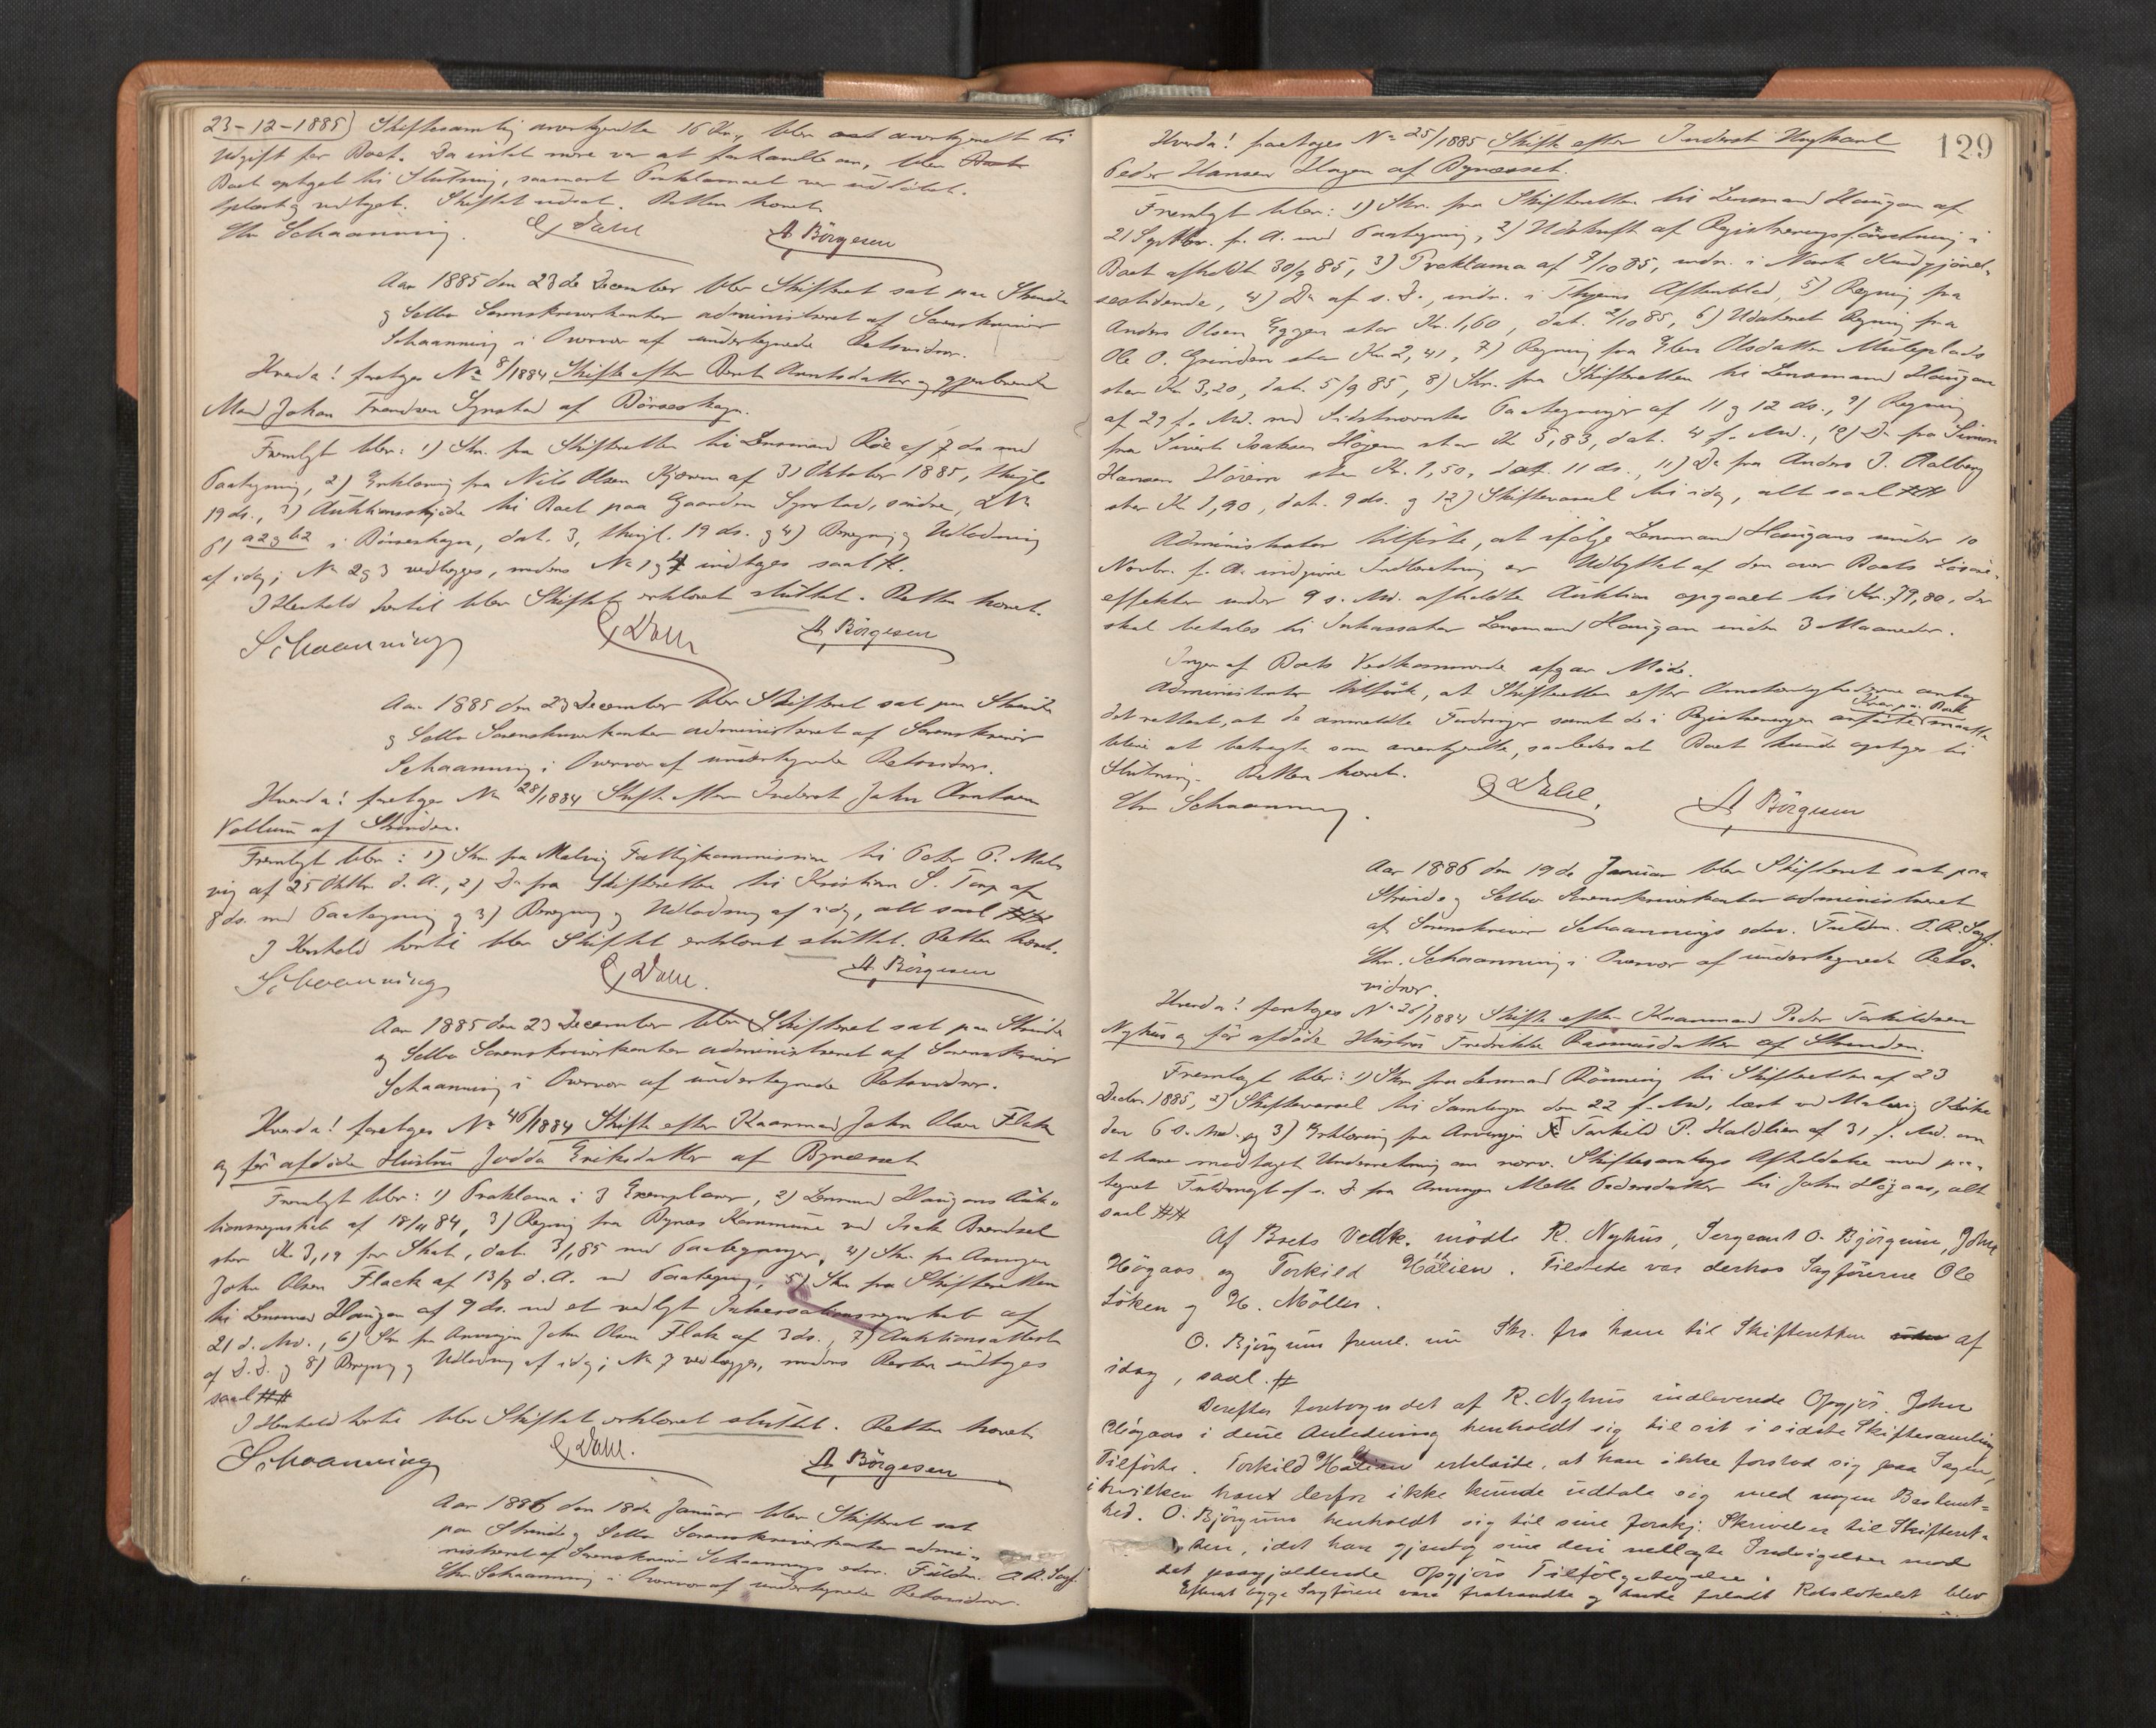 23-12-1885) Skiftesamling anerkjendte 16 Kr., blev anerkjendt til
Udgift for Boet. Da intet mere var at forhandle om, blev
Boet optaget til Slutning, saasnart Proklamaet var udløbet.
Oplæst og vedtaget. Skiftet udsat. Retten hævet.
Chr Schaanning. E Dahl A Børgesen
Aar 1885 den 23de December blev Skifteret sat paa Strinde
og Selbu Sorenskriverkontor administreret af Sorenskriver
Schaanning i Overvær af undertegnede Retsvidner.
Hvorda! foretoges No 8/1884 Skifte efter Berit Arntsdatter og gjenlevende
Mand Johan Frendsen Synstad af Børseskogn.
Fremlagt blev: 1) Skr. fra Skifteretten til Lensmand Röe af 7 ds med
Paategning, 2) Erklæring fra Nils Olsen Kjøren af 31 Oktober 1885, thinglæst
19 ds., 3) Auktionsskjøde til Boet paa Gaarden Synstad, søndre, LNo
61 a2 og b2 i Børseskogn, dat. 3, thingl. 19 ds. og 4) Beregning og Udlodning
af idag; No 2 og 3 vedlægges, medens No 1 og 4 indtages saal #.
I Henhold hertil blev Skiftet erklæret sluttet. Retten hævet.
Schaanning E Dahl A Börgesen
Aar 1885 den 23 December blev Skifteret sat paa Strinde
og Selbu Sorenskriverkontor administreret af Sorenskriver
Schaanning i Overvær af undertegnede Retsvidner.
Hvorda! foretoges No 28/1884 Skifte efter Inderst John Arntsen
Vollum af Strinden.
Fremlagt blev: 1) Skr. fra Malvig Fattigkommission til Peder P. Mal-
vig af 25 Oktbr. d. A., 2) Do fra Skifteretten til Kristian S. Torp af
8 ds. med Paategning og 3) Beregning og Udlodning af idag, alt saal ###
I Henhold hertil blev Skiftet erklæret sluttet. Retten hævet.
Schaanning E Dahl. A Börgesen
Aar 1885 den 23 December blev Skifteret sat paa Strinde
og Selbu Sorenskriverkontor administreret af Sorenskriver
Schaanning i Overvær af undertegnede Retsvidner.
Hvorda! foretoges No 46/1884 Skifte efter Kaarmand John Olsen Flak
og før afdøde Hustru Jodda Eriksdatter af Bynæset
Fremlagt blev: 1) Proklama i 3 Exemplarer, 2) Lensmand Haugans Auk-
tionsregnskab af 18/11 84, 3) Regning fra Bynæs Kommune ved Isak Brendsel
stor Kr. 3,19 for Skat, dat. 3/1 85 med Paategninger, 4) Skr. fra Arvingen
John Olsen Flack af 13/8 d. A. med Paategning, 5) Skr. fra Skifteretten
til Lensmand Haugan af 9 ds. med et vedlagt Inkassationsregnskab af
21 d. Md., 6) Skr fra Arvingen John Olsen Flak af 3 ds., 7) Auktionsattest
af D. D. og 8) Beregning og Udlodning af idag; No 7 vedlægges, medens Resten indtages
saal ##
I Henhold hertil blev Skiftet erklæret sluttet. Retten hævet.
Schaanning E Dahl. A Börgesen
Aar 1886 den 18de Januar blev Skifteret sat
paa Strinde og Selbu Sorenskriverkontor admi-
nistreret af Sorenskriver Schaannings edsv. Fuldm. O.R.Sagf.
Chr. Schaanning i Overvær af undertegnede Retsvidner.
129
Hvorda! foretoges No 25/1885 Skifte efter Inderst Ungkarl
Peder Hansen Hagen af Bynæsset.
Fremlagt blev: 1) Skr. fra Skifteretten til Lensmand Haugan af
21 Septbr. f. A. med Paategning, 2) Udskrift af Registreringsforretning i
Boet afholdt 30/9 85, 3) Proklama af 7/10 85, indr. i Norsk Kundgjørel-
sestidende, 4) Do af s. D., indr. i Thjems Aftenblad, 5) Regning fra
Anders Olsen Eggen stor Kr. 1,60, dat. 2/10 85, 6) Udateret Regning fra
Ole O. Grinden stor Kr 2,41, 7) Regning fra Olsdatter Muleplads
stor Kr 3,20, dat. 5/9 85, 8) Skr. fra Skifteretten til Lensmand Haugan
af 29 f. Md. med Sidstnævntes Paategninger af 11 og 12 ds., 9) Regning
fra Sivert Isaksen Høgen stor Kr 5,83, dat. 4 f. Md., 10) Do fra Simon
Hansen Høiem stor Kr. 1,50, dat. 11 ds., 11) Do fra Anders J. Aalberg
stor Kr 1,90, dat. 9 ds. og 12) Skiftevarsel til idag, alt saal ##
Administrator tilførte, at ifølge Lensmand Haugans under 10
Novbr. f. A. indgivne Indberetning er Udbyttet af den over Boets Løsøre-
effekter under 9 s. Md. afholdte Auktion opgaaet til Kr. 79,80, der
skal betales til Inkassator Lensmand Haugan inden 3 Maaneder.
Ingen af Boets Vedkommende afgav Møde.
Administrator tilførte, at Skifteretten efter Omstændighederne antog
Krav paa Boet
det rettest, at de anmeldte Fordringer samt de i Registreringen anførte maatte
blive at betragte som anerkjendte, saaledes at Boet kunde optages til
Slutning. Retten hævet.
Chr Schaanning. E Dahl. A Börgesen
Aar 1886 den 19de Januar blev Skifteret sat paa
Strinde og Selbu Sorenskriverkontor administreret
af Sorenskriver Schaannings edsv. Fuldm. O.R.Sagf.
Chr. Schaanning i Overvær af undertegnede Rets-
vidner.
Hvorda! foretoges No 26/1884 Skifte efter Kaarmand Peder Torkildsen
Nyhus og før afdøde Hustru Fredrikke Rasmusdatter af Strinden.
Fremlagt blev: 1) Skr. fra Lensmand Rönning til Skifteretten af 23
Decbr. 1885, 2) Skiftevarsel til Samlingen den 22 f. Md., læst ved Malvig Kirke
den 6 s. Md. og 3) Erklæring fra Arvingen Torkild P. Haldlien af 31 f. Md. om
at have modtaget Underretning om nærv. Skiftesamlings Afholdelse med paa-
tegnet Fuldmagt af s. D fra Arvingen Mette Pedersdatter til John Högaas, alt
saal ##
Af Boets Vedk. mödte R. Nyhus, Sergeant O. Björgum, John
Högaas og Torkild Hallien. Tilstede var derhos Sagførerne Ole
Löken og H. Möller.
O. Björgum freml. en Skr. fra ham til Skifteretten af
idag, saal. #
Derefter foretoges det af R. Nyhus indleverede Opgjör. John
Högaas i denne Anledning henholdt sig til sit i sidste Skiftesamling
Tilførte. Torkild Hallien erklærte, at han ikke forstod sig paa Sagen,
i hvilken han derfor ikke kunde udtale sig med nogen Bestemt-
hed. O. Björgum henholdt sig til sine forskj. Skrivelser til Skifteret-
ten, idet han gjentog sine deri nedlagte Indsigelser mod
det paagjældende Opgjörs Tilfölgetagelse.
Efterat begge Sagførere vare fratraadte og havde forladt Retslokalet blev